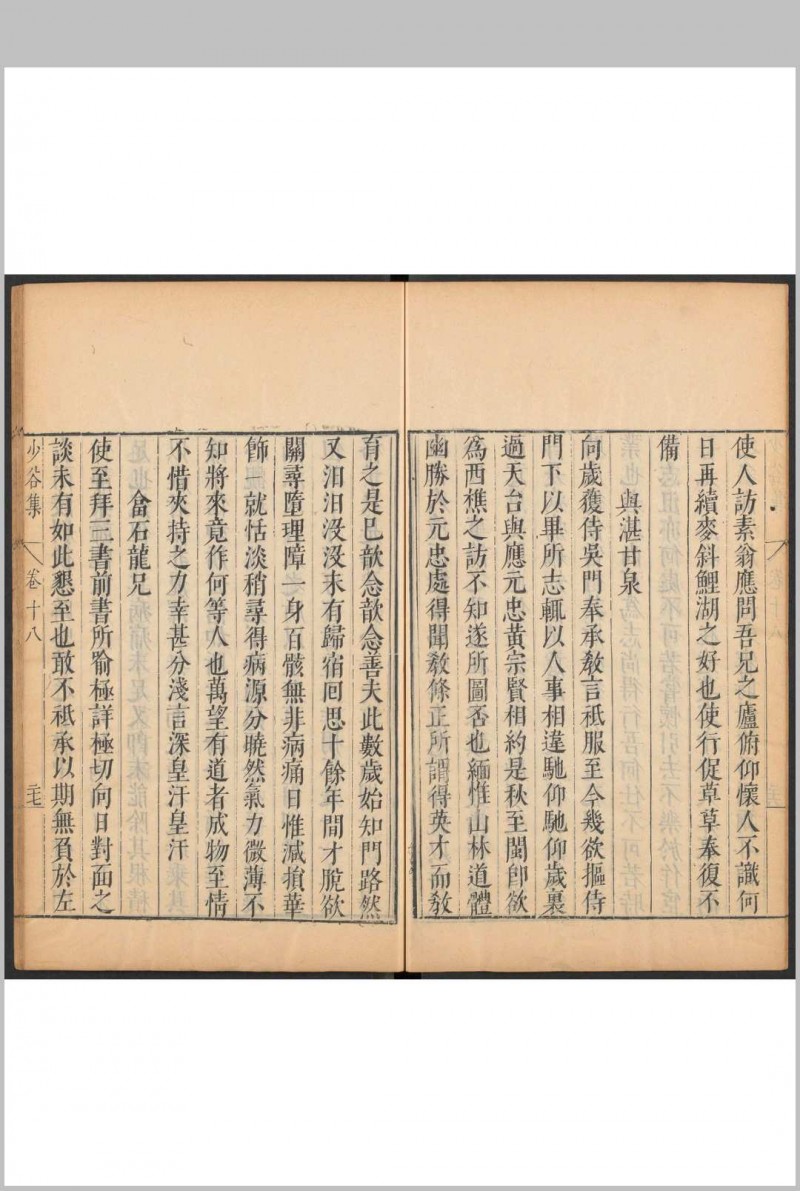 使人訪素翁應問吾兄之廬俯仰懷人不識何
日再續麥斜鯉湖之好也使行促草草奉復不
備
與湛甘泉
向歲獲侍吳門奉承敎言祗服至今幾欲摳侍
門下以畢所志輒以人事相違馳仰馳仰歲裏
過天台與應元忠黃宗賢相約是秋至閩卽欲
爲西樵之訪不知遂所圖否也緬惟山林道體
幽勝於元忠處得聞敎條正所謂得英才而敎
育之是已歆念歆念善夫此數歲始知門路然
又汨汨没没未有歸宿囘思十餘年間才脫欲
關尋墮理障一身百骸無非病痛日惟减損華
飾一就恬淡稍尋得病源分曉然氣力微薄不
知將來竟作何等人也萬望有道者成物至情
不惜夾持之力幸甚分淺言深皇汗皇汗
畣石龍兄
使至拜三書前書所喻極詳極切向日對面之
談未有如此懇至也敢不祗承以期無負於左
少谷集 卷十八 二十七